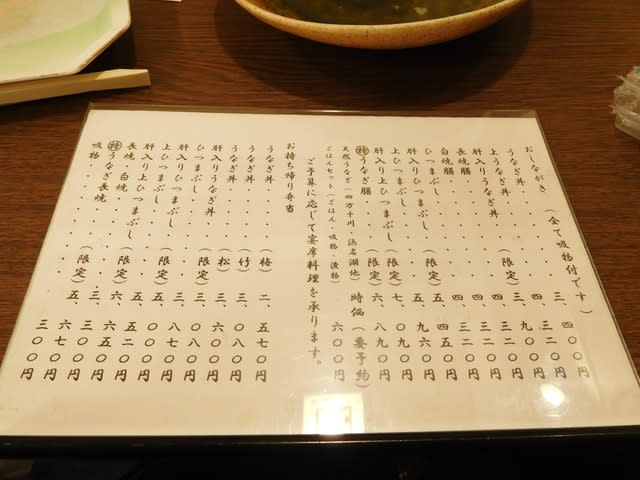 おしながき (全て吸物付です)
うなぎ丼・・・・・三、四〇〇円
上うなぎ丼・・・・四、三二〇円
肝入りうなぎ丼(限定)三、九〇〇円
長焼膳・・・・・・四、三二〇円
白焼膳・・・・・・四、三二〇円
ひつまぶし・・・・四、四五〇円
肝入りひつまぶし(限定)五、九六〇円
上ひつまぶし・・・五、〇九〇円
肝入り上ひつまぶし(限定)七、八九〇円
㊕うなぎ膳・(限定)六、
天然うなぎ(四万十川・浜名湖他)時価(要予約)
ごはんセット(ごはん・吸物・漬物)六〇〇円
ご予算に応じて宴席料理を承ります。
お持ち帰り弁当
うなぎ丼・・・(梅)二、五七〇円
うなぎ丼・・・(竹)三、〇八〇円
うなぎ丼・・・(松)三、六〇〇円
肝入りうなぎ丼(限定)三、
ひつまぶし・・・・三、
肝入りひつまぶし(限定)
上ひつまぶし・・・五、
肝入り上ひつまぶし(限定)六、
長焼・白焼・・・・三、
㊕うなぎ長焼(限定)五、六七〇円
吸物・・・・・・・三〇〇円